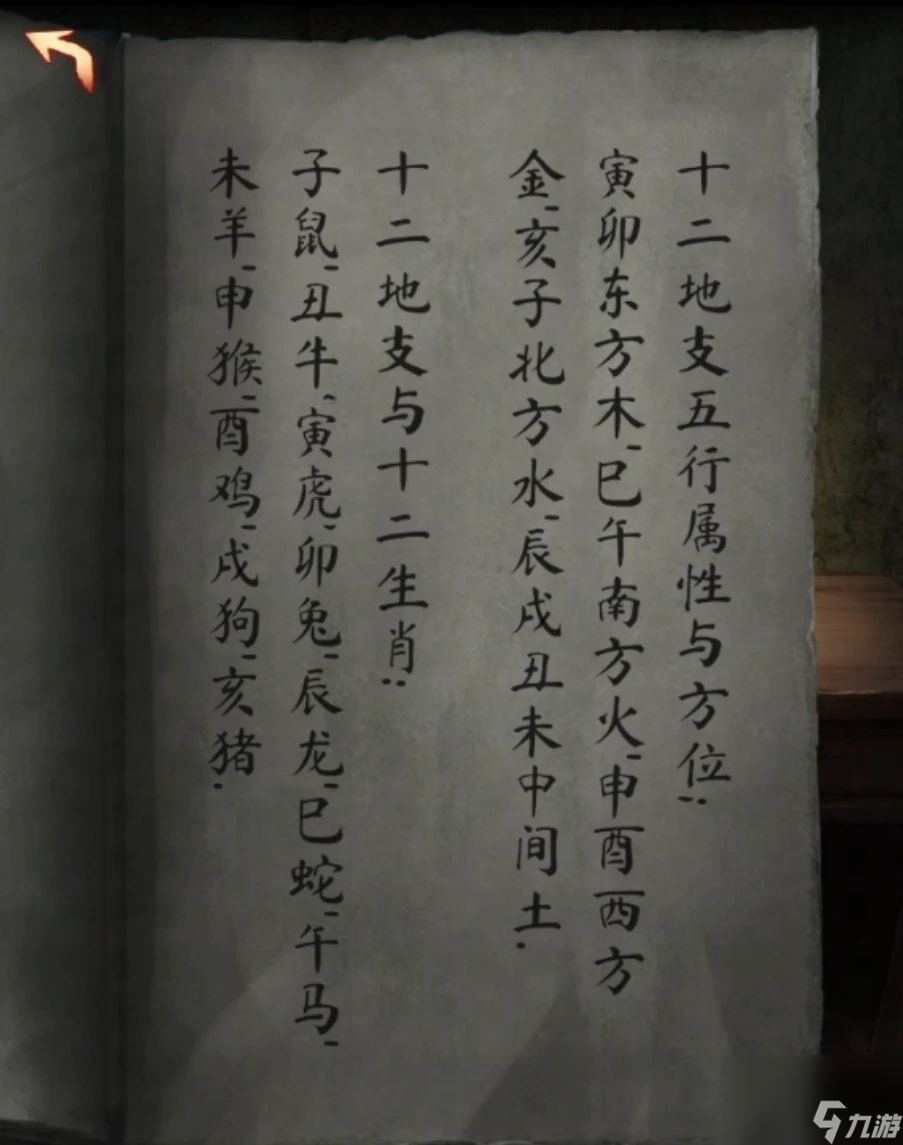 十二地支五行属性与方位:
寅卯东方木、巳午南方火、申酉西方
金、亥子北方水、辰戌丑未中间土.
十二地支与十二生肖:
子鼠、丑牛、寅虎、卯兔、辰龙、巳蛇、午马、
未羊、申猴、酉鸡、戌狗、亥猪.
九游